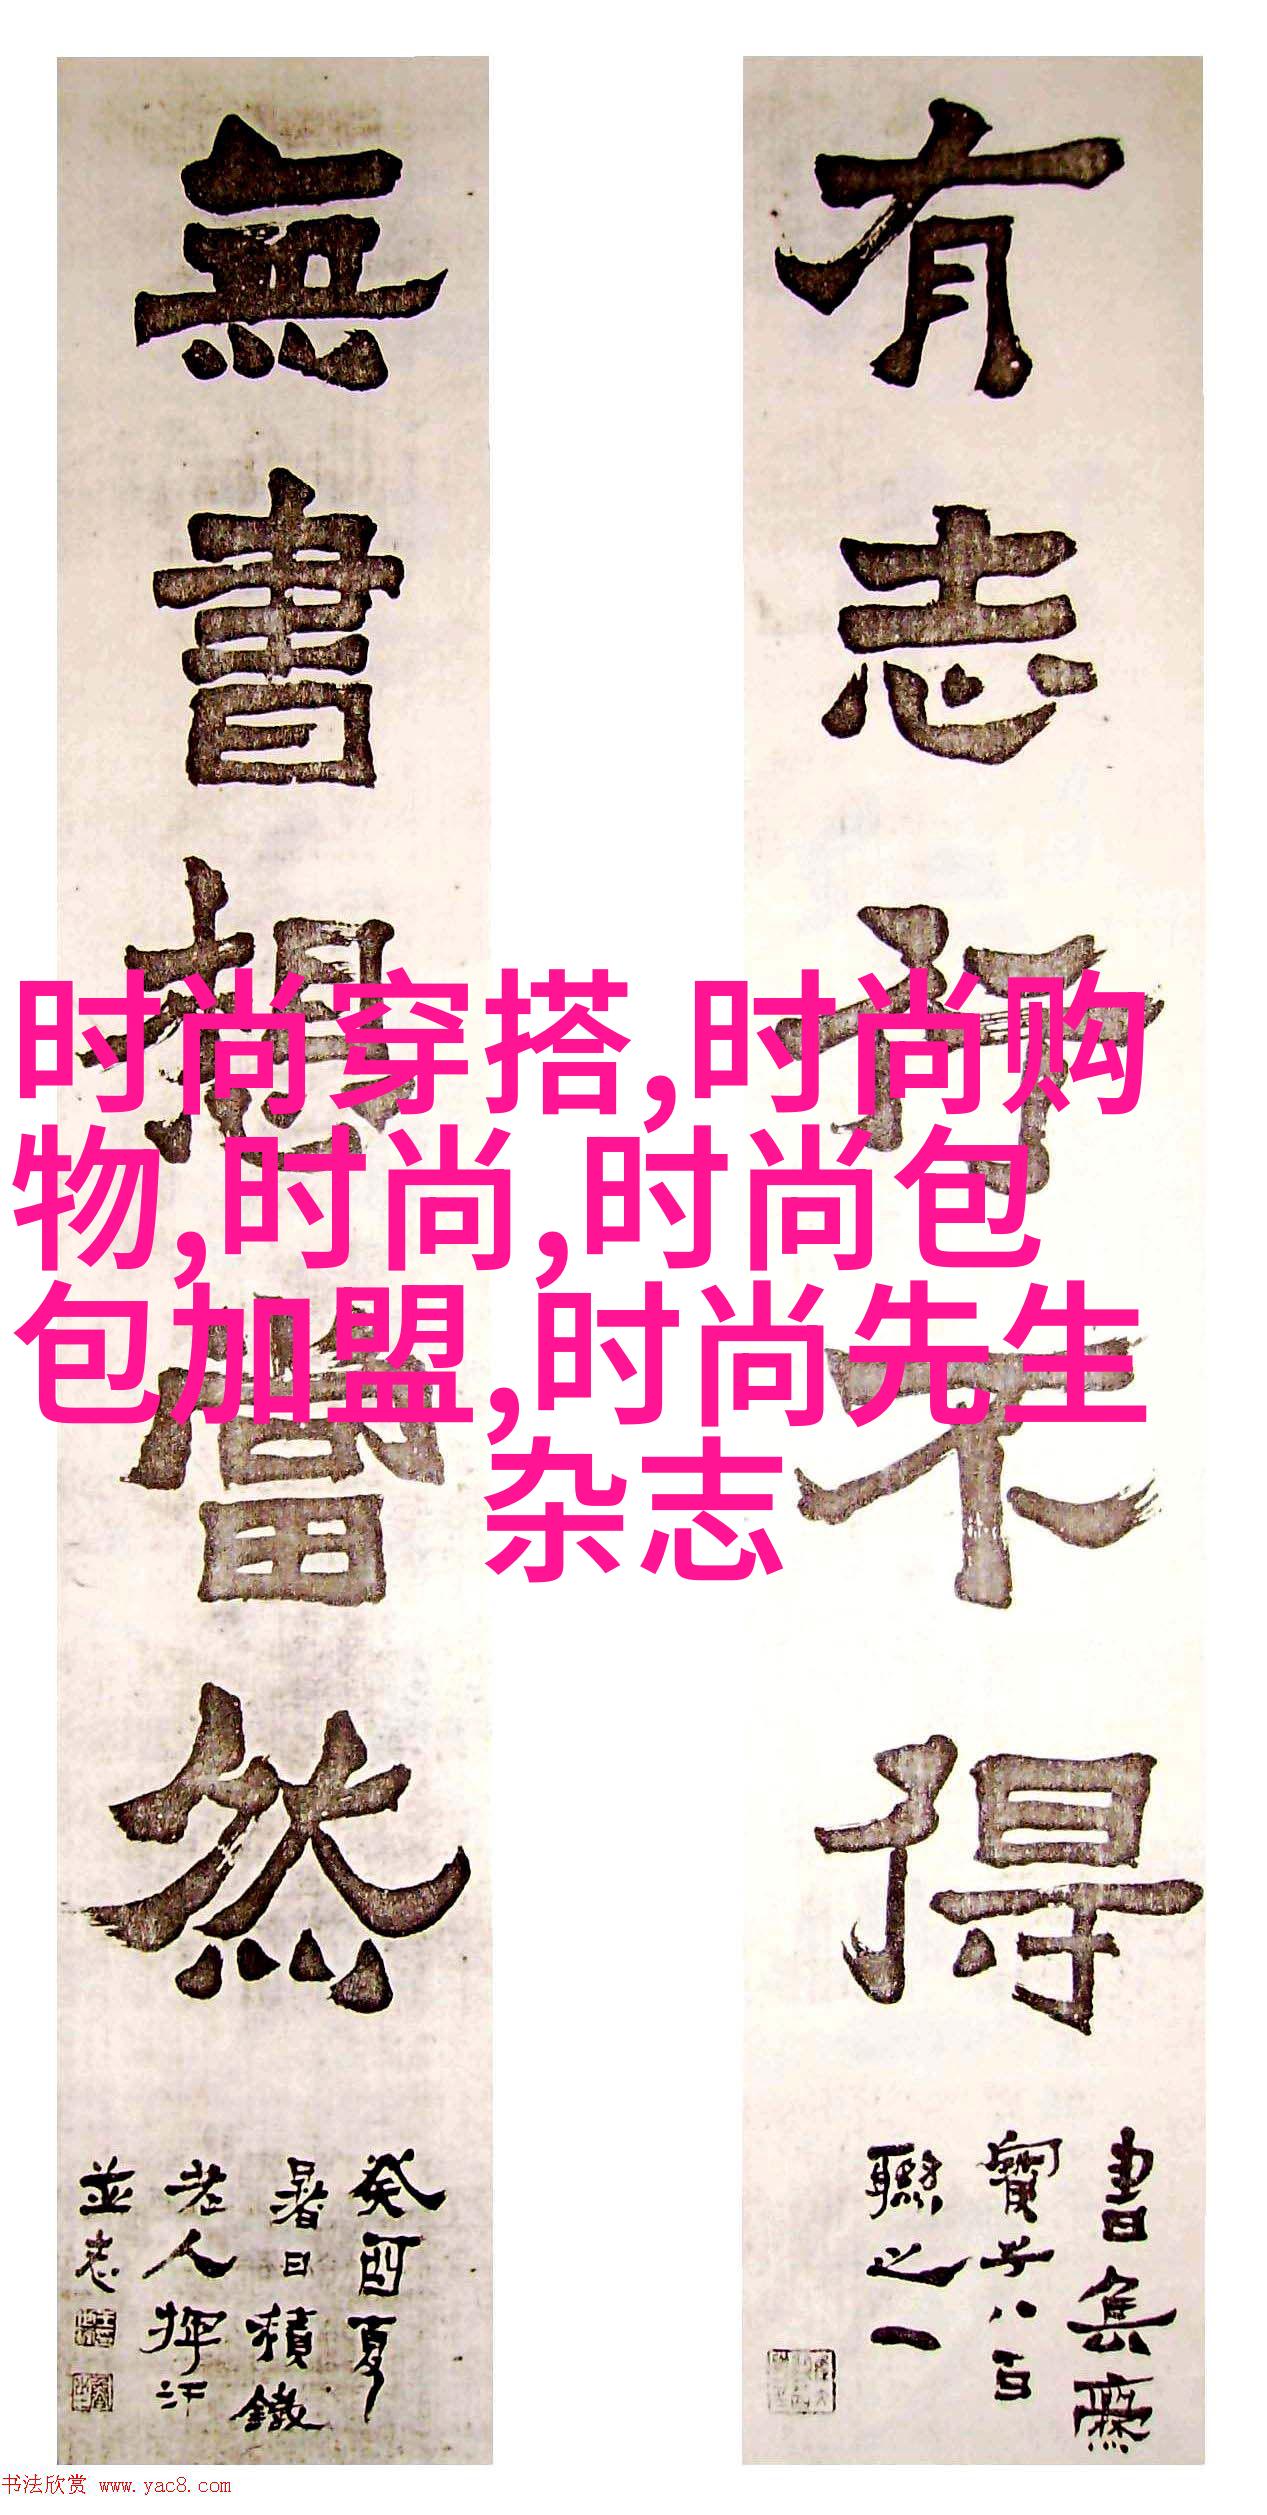 有志行不得
書集齋
寶子八百
聯之一
無書想當然
癸酉夏
暑日積鐵
老人揮汗
並志
时尚穿搭,时尚购
物,时尚,时尚包
包加盟,时尚先生
杂志
书法欣赏 www.yac8.com